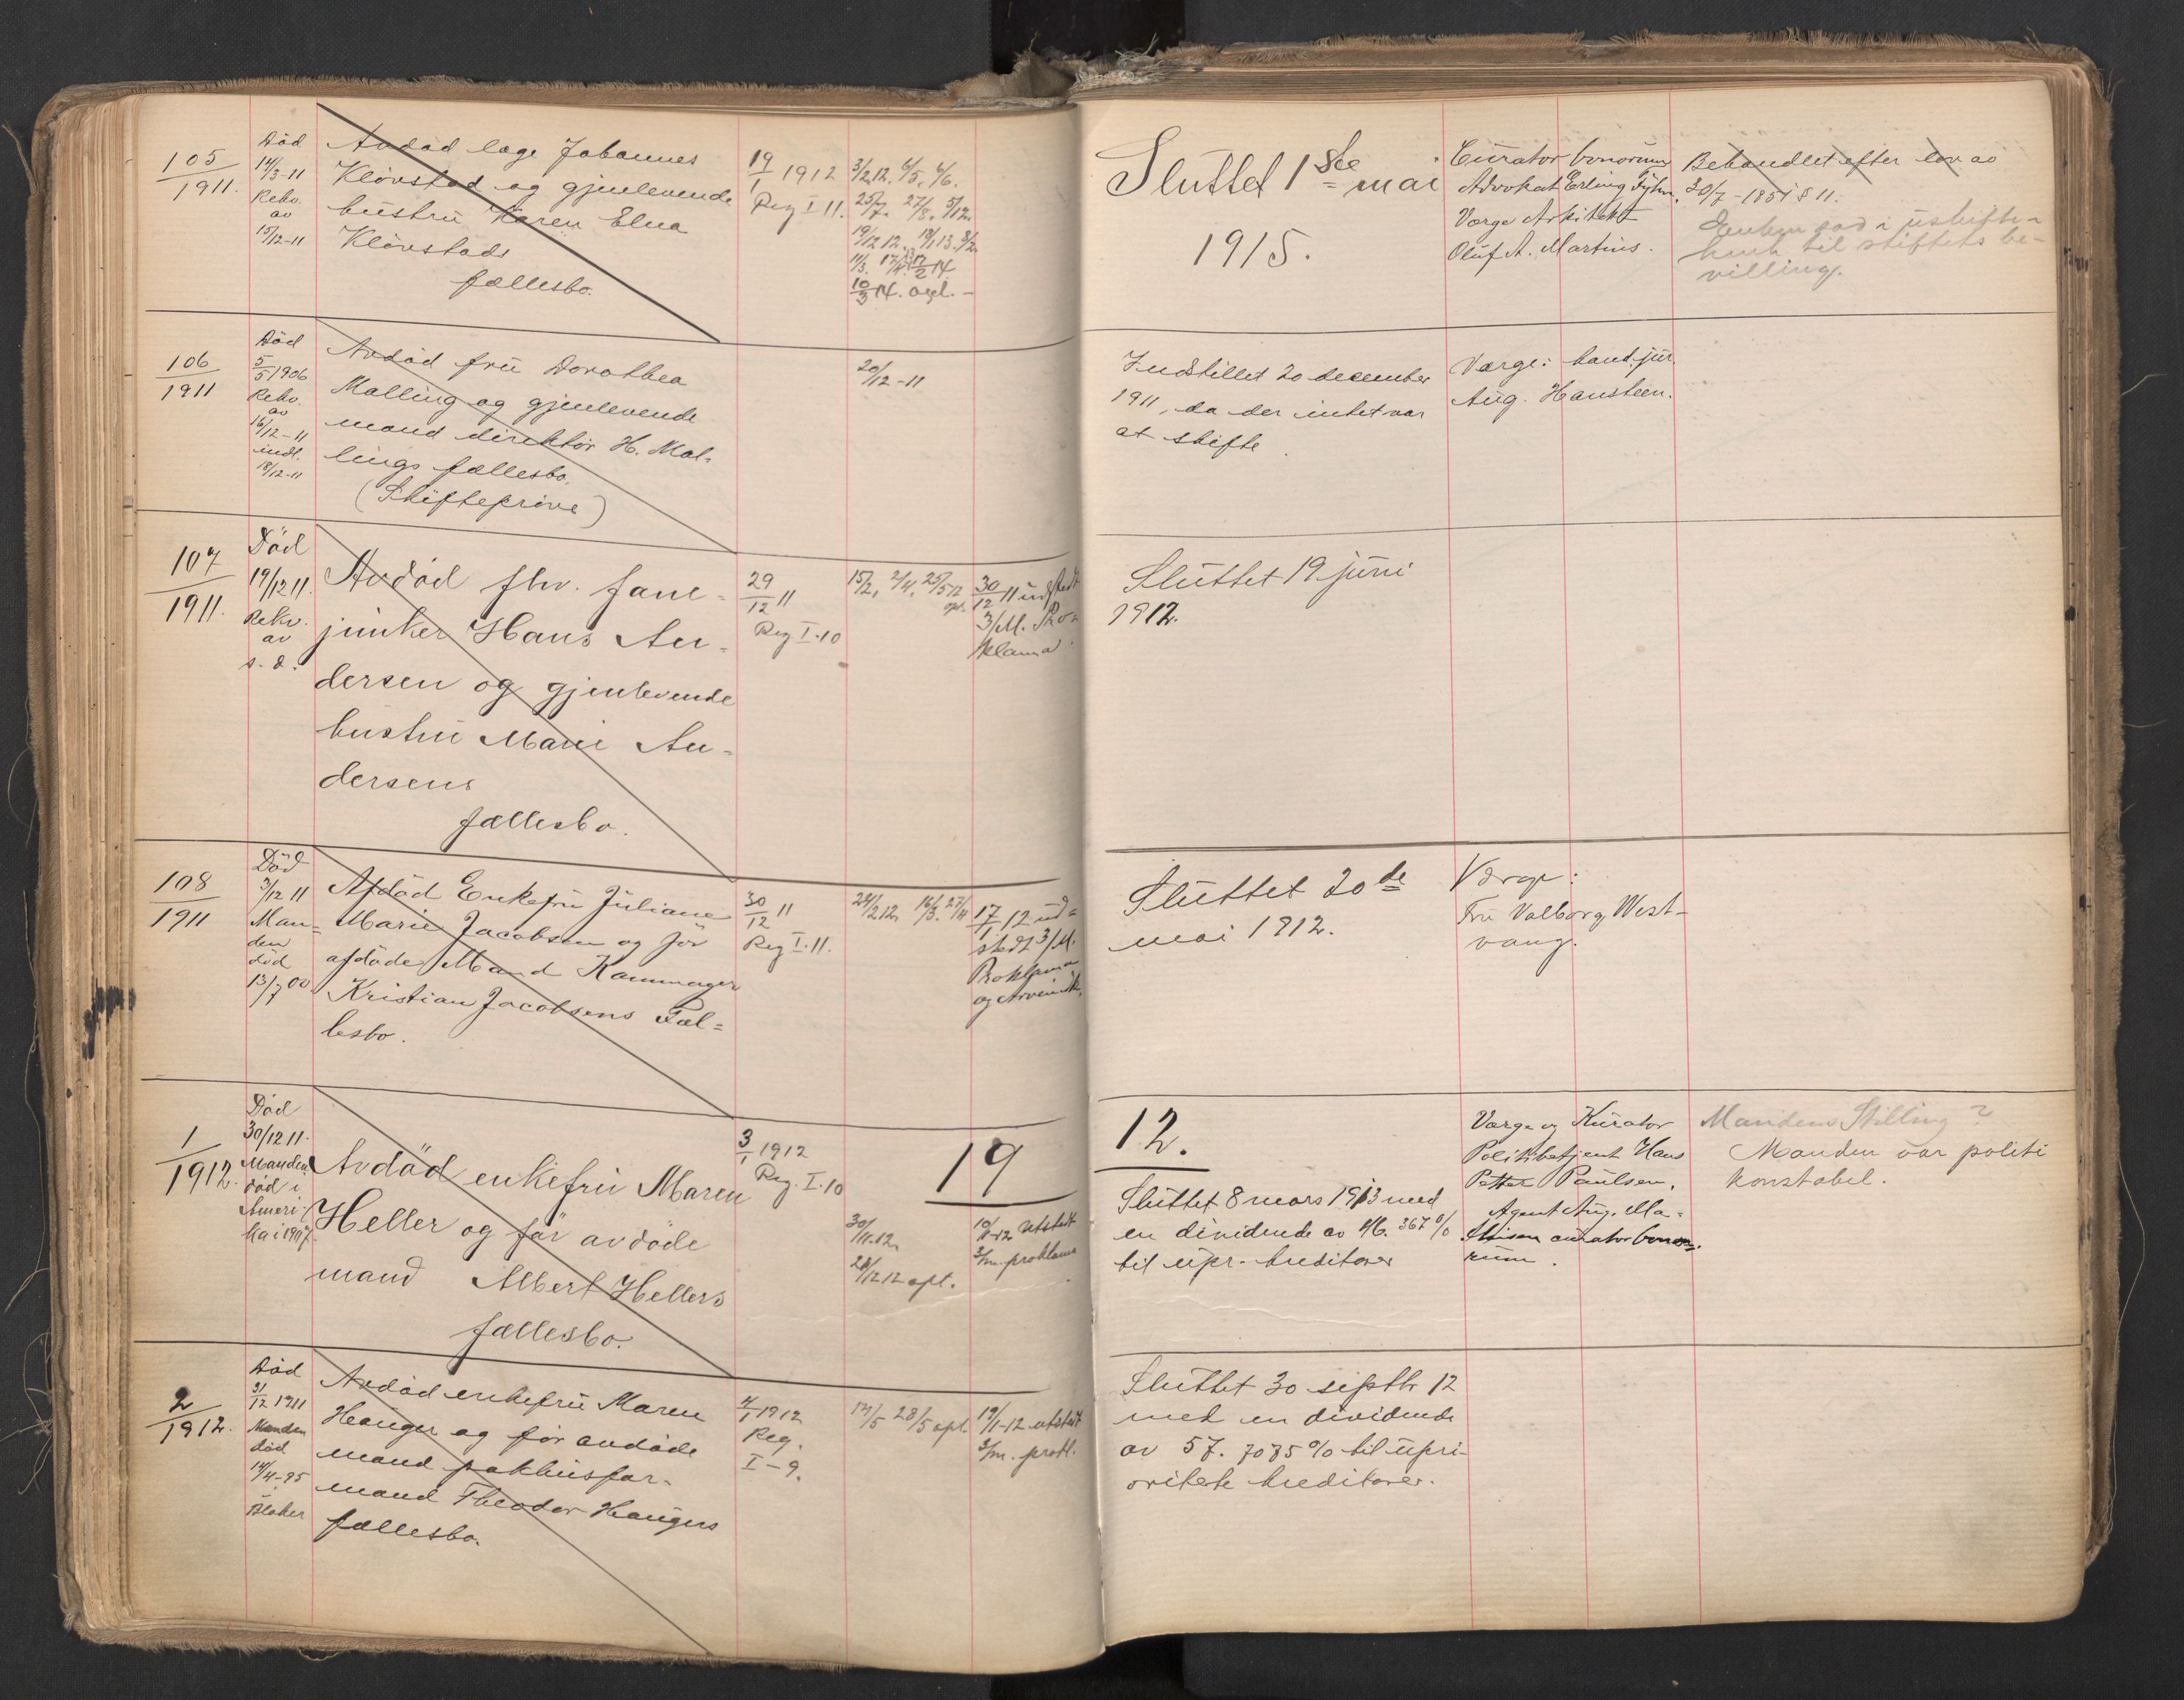 105
1911.
Död
14/3-11
Rekv.
av
15/12-11
Avdöd læge Johannes
Klövstad og gjenlevende
hustru Karen Elna
Klövstads
fællesbo.
19/1 1912
Reg I-11.
3/2 12, 6/5, 4/6.
25/7. 27/8. 5/12.
19/12 12. 3/2.
11/3. 17/2 14
10/3 14. avsl. -
Sluttet 1ste mai
1915.
Curator bonorum
Advokat Erling
Værge Arkitekt
Oluf A. Martins.
Behandlet efter lov av
30/7-1851 § 11.
Enken sad i uskifte
til stiftets be-
villing.
106
1911
Död
5/5 1906
Rekv.
av
16/12-11
indl.
18/12-11
Avdöd fru Dorothea
Malling og gjenlevende
mand direktör H. Mal-
lings fællesbo.
(Skiftepröve)
20/12-11
Indstillet 20 december
1911, da der intet var
at skifte
Værge: cand. jur.
Aug. Hansteen.
107
1911.
Död
19/12 11.
Rekv.
av
s. d.
Avdöd fhv. fane-
junker Hans An-
dersen og gjenlevende
hustru Marie An-
dersens
fællesbo.
29/12 11
Reg I-10
15/2, 2/4, 25/5 12
opl.
30/12 11 udstedt
3/M. Pro-
klama.
Sluttet 19 juni
1912.
108
1911
Död
3/12 11
Man-
den
död
13/7 00
Afdöd Enkefru Juliane
Marie Jacobsen og för
afdöde Mand Kammager
Kristian Jacobsens Fæl-
lesbo.
30/12 11
Reg I-11.
24/2 12, 16/3. 27/4
17/1 12 ud-
stedt 3/M.
Proklama
og Arveindk.
Sluttet 20de
mai 1912.
Værge:
Fru Valborg West-
vang.
1
1912.
Död
30/12 11.
Manden
död i
Ameri-
ka i 1907.
Avdöd enkefru Maren
Heller og för avdöde
mand Albert Hellers
fællesbo.
3/1 1912
Reg. I-10
19
30/11.12,
28/12 12 opl.
10/1-12 utstedt
3/m. proklama
12.
Sluttet 8 mars 1913 med
en dividende av 46.367 %
til upr. kreditorer
Værge og Kurator
Politibetjent Hans
Petter Paulsen.
Agent Aug. Ma-
thisen curator bono-
rum.
Mandens Stilling?
Manden var politi
konstabel.
2
1912.
Död
31/12 1911
Manden
död
14/4-95
Blaker
Avdöd enkefru Maren
Hauger og för avdöde
mand pakhusfor-
mand Theodor Haugers
fællesbo.
4/1 1912
Reg.
I-9.
14/5 28/5 opl.
19/1-12 utstedt
3/m. prokl.
Sluttet 30 septbr 12
med en dividende
av 57.7085 % til upri-
oritete kreditorer.